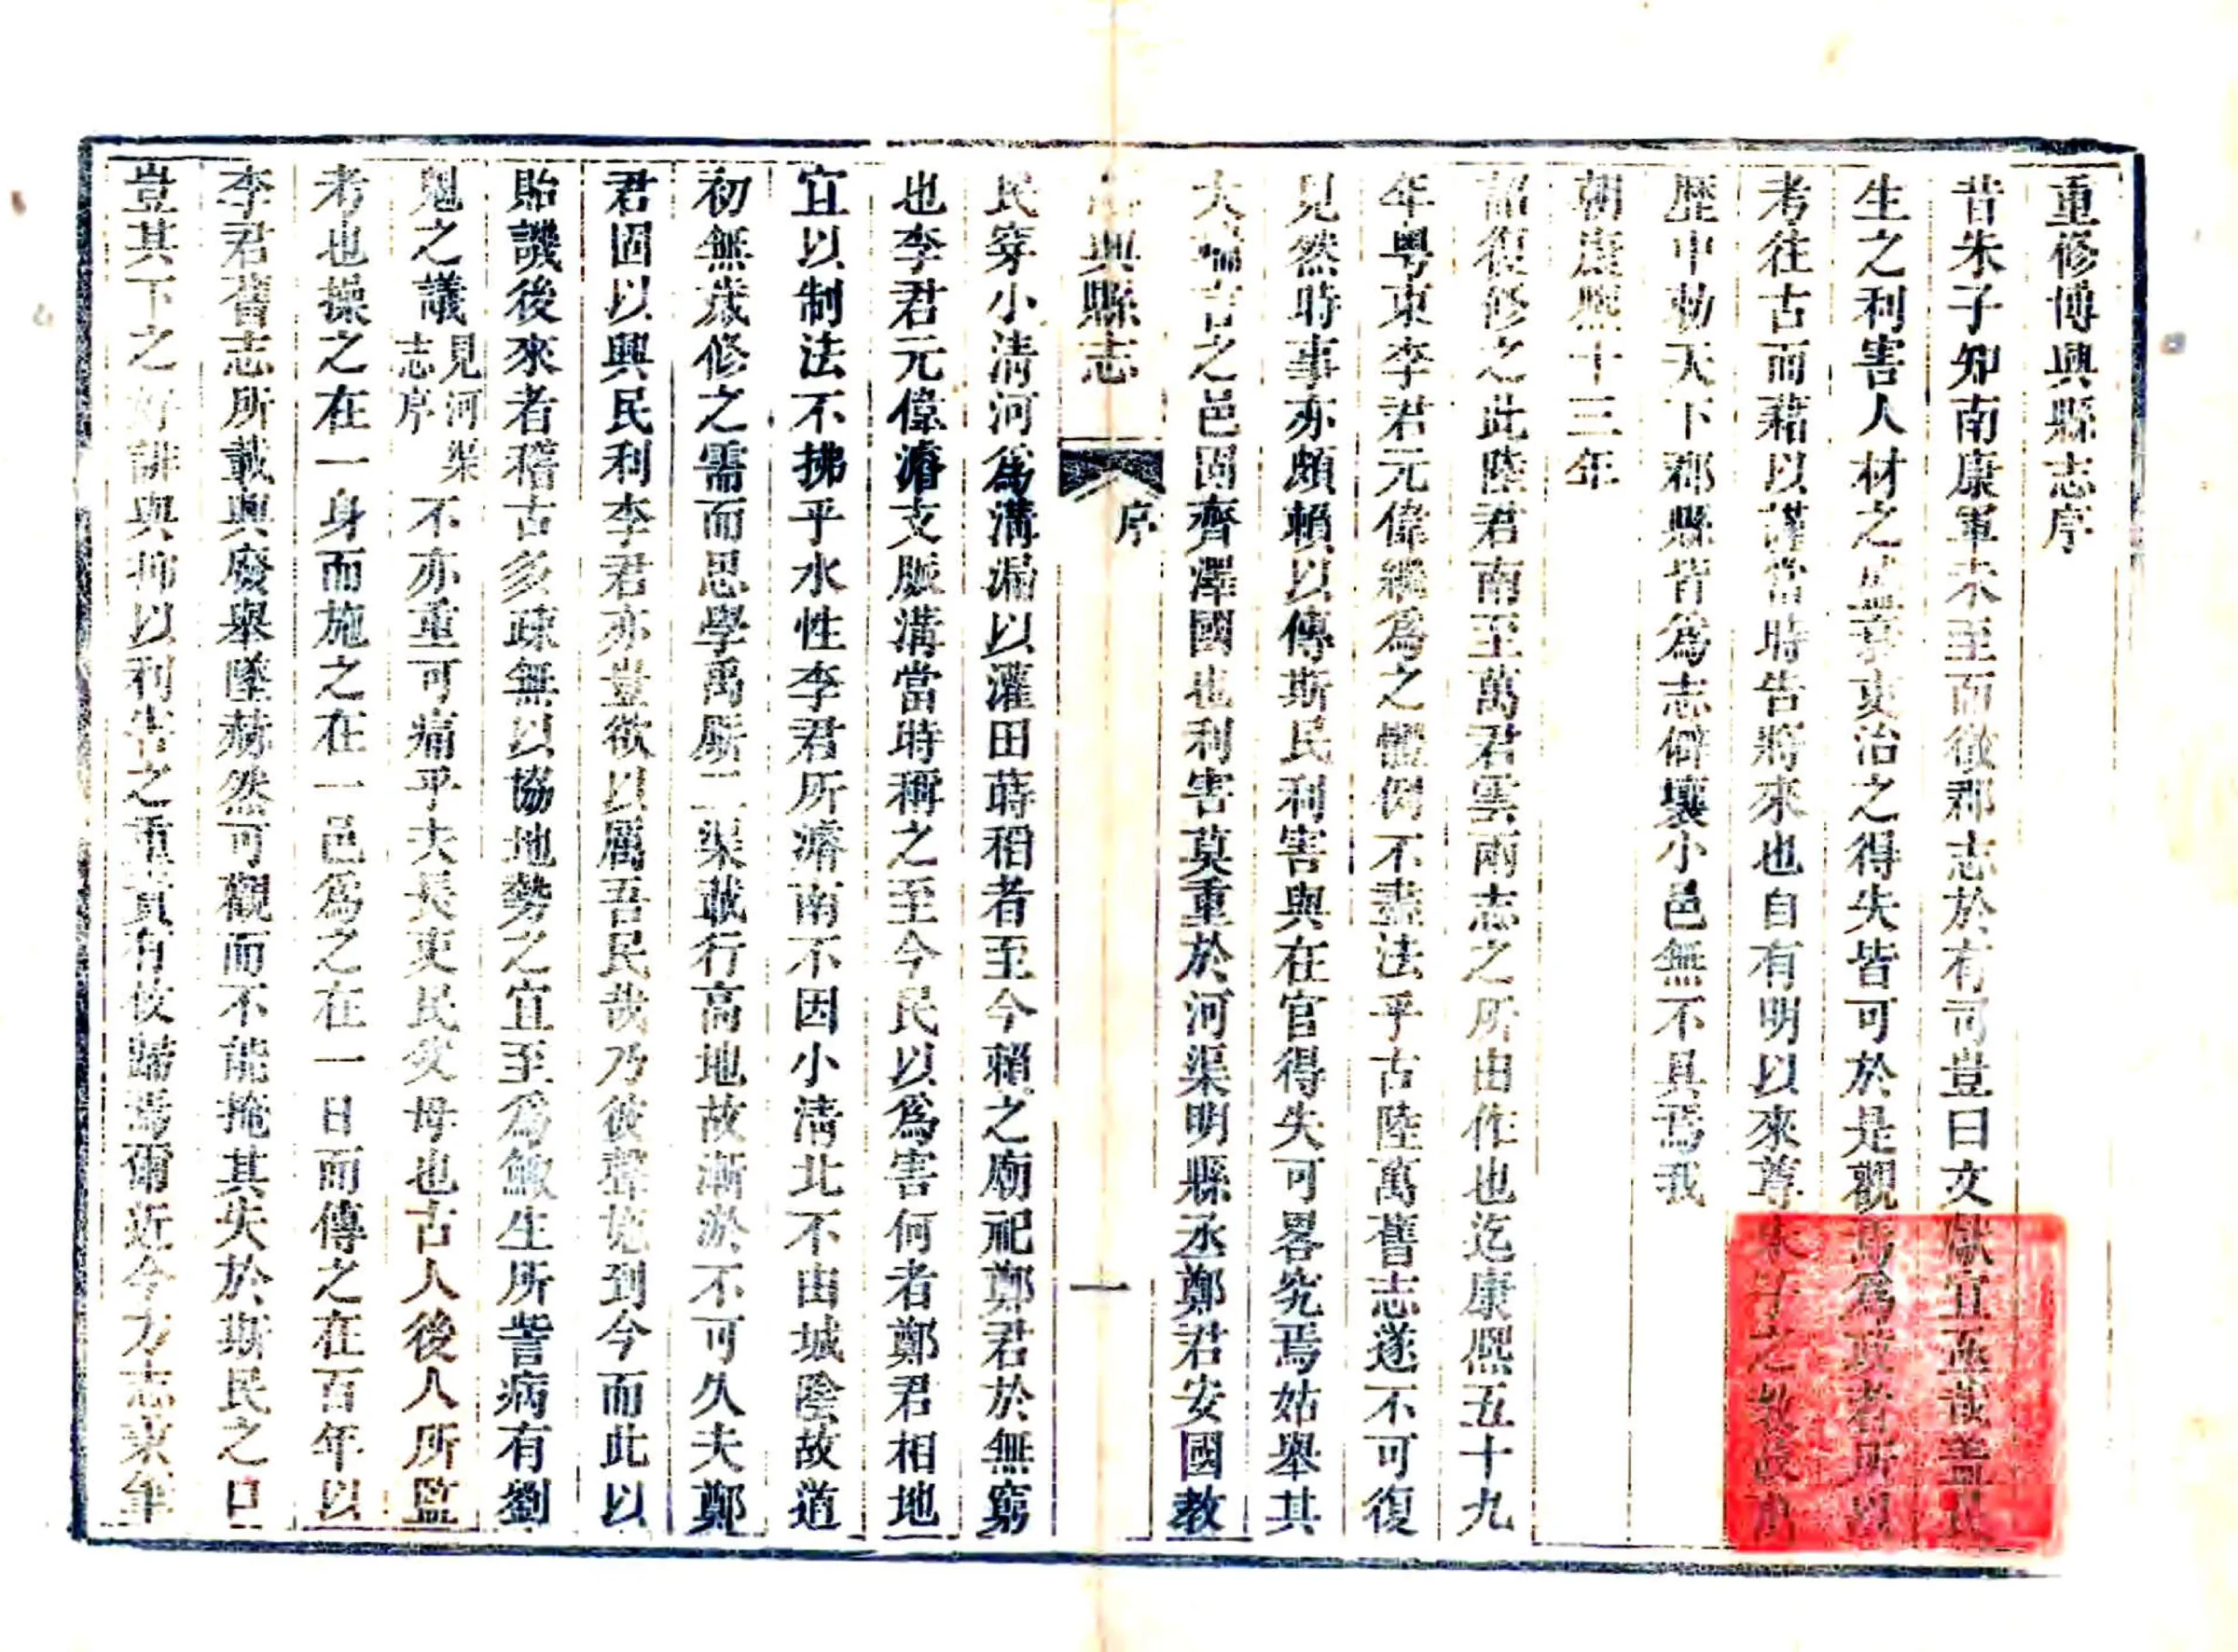 重修博興縣志序
昔朱子知南康軍未至而徵郡志於有司豈曰文獻宜亟哉蓋民
生之利害人材之盛衰吏治之得失皆可於是觀焉為政者所以
考往古而藉以謹當時告將來也自有明以來尊朱子之教故萬
歷中勅天下郡縣皆為志僻壤小邑無不具焉我
朝康熙十三年
詔復修之此陸君南至萬君雲兩志之所由作也迄康熙五十九
年粤東李君元偉繼為之體例不盡法乎古陸萬舊志遂不可復
見然時事亦頗賴以傳斯民利害與在官得失可畧究焉姑舉其
大端言之邑固齊澤國也利害莫重於河渠明縣丞鄭君安國教
興縣志 序 一
民穿小清河為溝漏以灌田蒔稻者至今賴之廟祀鄭君於無窮
也李君元偉濬支脈溝當時稱之至今民以為害何者鄭君相地
宜以制法不拂乎水性李君所濬南不因小清北不由城陰故道
初無歲修之需而思學禹厮二渠載行高地故漸淤不可久夫鄭
君固以興民利李君亦豈欲以厲吾民哉乃彼聲施到今而此以
貽譏後來者稽古多疎無以協地勢之宜至為鯫生所訾病有劉
魁之議見河渠志序不亦重可痛乎夫長吏民父母也古人後人所監
考也操之在一身而施之在一邑為之在一日而傳之在百年以
李君舊志所載興廢舉墜赫然可觀而不能掩其失於斯民之口
豈其下之好誹與抑以利害之重責有攸歸焉爾近今方志東牟